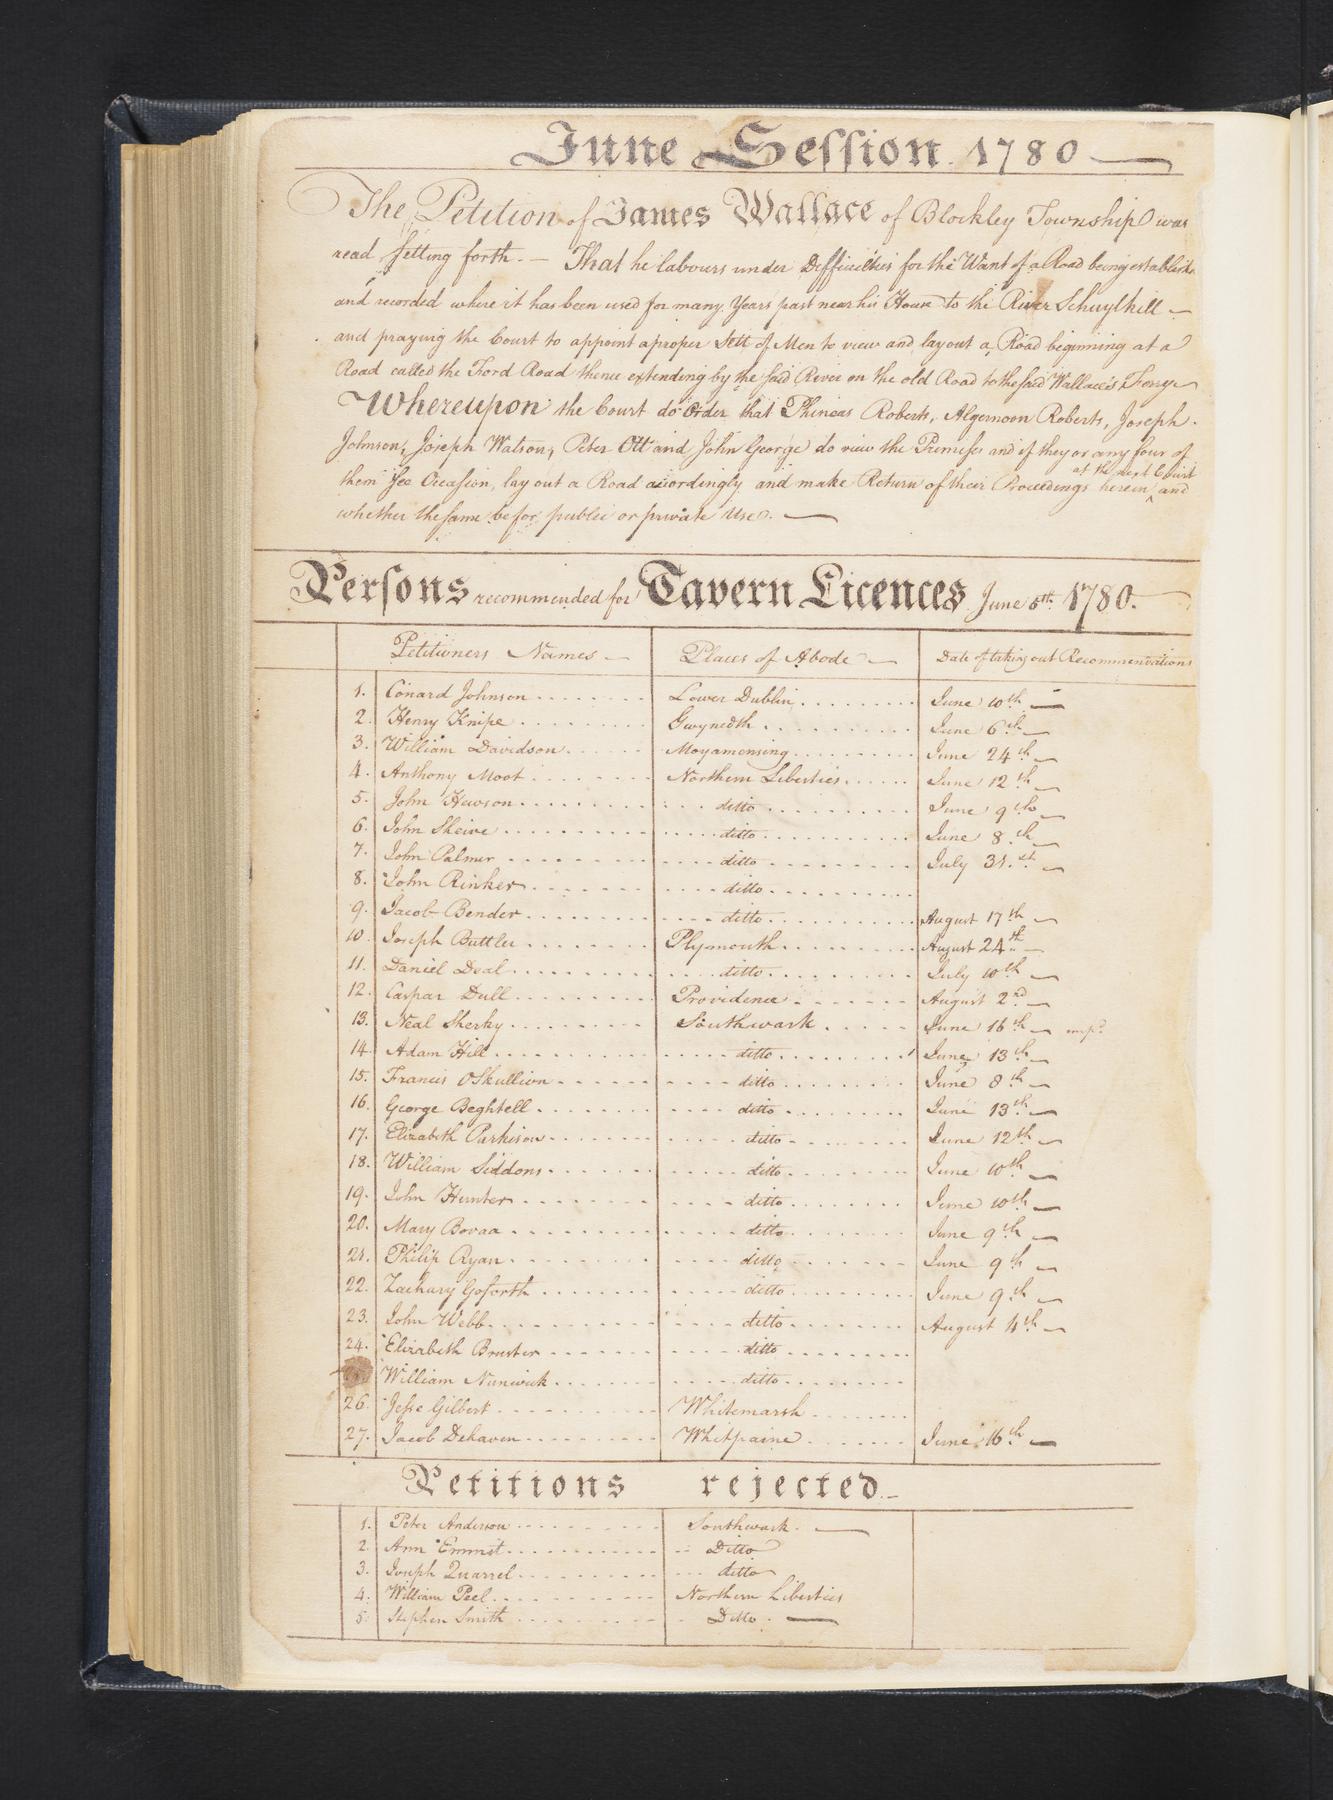 June Session 1780
The Petition of James Wallace of Blockley Township was
read setting forth. — That he labours under Difficulties for the Want of a Road being establish
and recorded where it has been used for many Years past near his House to the River Schuylkill —
and praying the Court to appoint a proper Sett of Men to view and lay out a Road beginning at a
Road called the Ford Road thence extending by the said River on the old Road to the said Wallace's Ferry
Whereupon the Court do Order that Phineas Roberts, Algernoon Roberts, Joseph
Johnson, Joseph Watson, Peter Ott and John George do view the Premises and if they or any four of
at the next Court
them see Occasion, lay out a Road accordingly and make Return of their Proceedings herein ‸ and
whether the same be for public or private Use. —
Persons recommended for Tavern Licences June 5th. 1780.
Petitioners Names — Places of Abode — Date of taking out Recommendations
1. Conard Johnson Lower Dublin June 10th —
2. Henry Knipe Gwynedth June 6th —
3. William Davidson Moyamensing June 24th —
4. Anthony Moot Northern Liberties June 12th —
5. John Hewson ditto June 9th —
6. John Skeire ditto June 8th —
7. John Palmer ditto July 31st —
8. John Rinker ditto
9. Jacob Bender ditto August 17th —
10. Joseph Buttler Plymouth August 24th —
11. Daniel Deal ditto July 10th —
12. Caspar Dull Providence August 2nd —
13. Neal Sherky Southwark June 16th —
14. Adam Hill ditto June 13th —
15. Francis OSkullion ditto June 8th —
16. George Beghtell ditto June 13th —
17. Elizabeth Parkison ditto June 12th —
18. William Siddons ditto June 10th —
19. John Hunter ditto June 10th —
20. Mary Bovaa ditto June 9th —
21. Philip Ryan ditto June 9th —
22. Zachary Goforth ditto June 9th —
23. John Webb ditto August 4th —
24. Elizabeth Bruster ditto
William Nunwick ditto
26. Jesse Gilbert Whitemarsh
27. Jacob Dehaven Whitpaine June 16th —
Petitions rejected —
1. Peter Anderson Southwark —
2. Ann Emmit Ditto
3. Joseph Quarrel ditto
4. William Peel Northern Liberties
5. Stephen Smith Ditto —